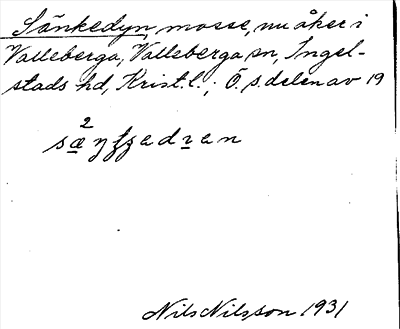 Sänkedyn, mosse, nu åker i
Valleberga, Valleberga sn, Ingel-
stads hd, Krist. l.; Ö. s. delen av 19
Nils Nilsson 1931